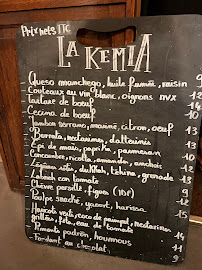 Prix nets TTC
LA KEMIA
Queso manchego, huile fumée, raisin 9
Couteaux au vin blanc, oignons nvx 12
Tartare de boeuf 14
Cecina de boeuf
Jambon serrano, mariné, citron, oeuf 13
Burrata, nectarines, datterinis
Épi de maïs, paprika, parmesan
Concombre, ricotta, amande, anchois
dukkah, tahina, grenade
Labneh con tomato
Chèvre persillé-figues (IDF) 9
Poulpe snacké, yaourt, harissa
Haricots verts, coco de paimpol, nectarines
grillées, feta, eau de tomate
Pimientos padron, houmous
Fondant au chocolat 9